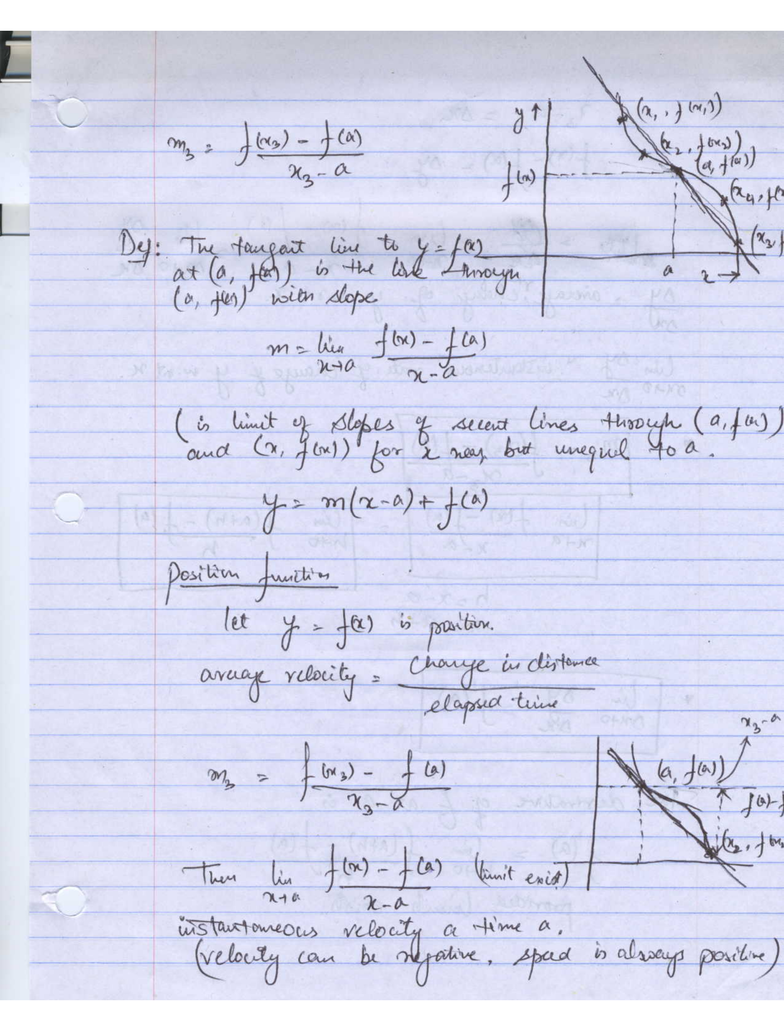 m₃ = f(x₃) - f(a) / x₃ - a
y ↑
(x₁, f(x₁))
(x₂, f(x₂))
(a, f(a))
f(x)
(x₄, f(x
(x₃, f
a
x →
Def: The tangent line to y = f(x)
at (a, f(a)) is the line through
(a, f(a)) with slope
m = lim x→a f(x) - f(a) / x - a
(is limit of slopes of secent lines through (a, f(a))
and (x, f(x)) for x near but unequal to a.
y = m(x-a) + f(a)
Position function
let y = f(x) is position.
average velocity = change in distance / elapsed time
x₃-a
m₃ = f(x₃) - f(a) / x₃ - a
(a, f(a))
f(a)-f
(x₂, f(x₂
Then lim x→a f(x) - f(a) / x - a (limit exist)
instantaneous velocity a time a.
(velocity can be negative, speed is always positive)